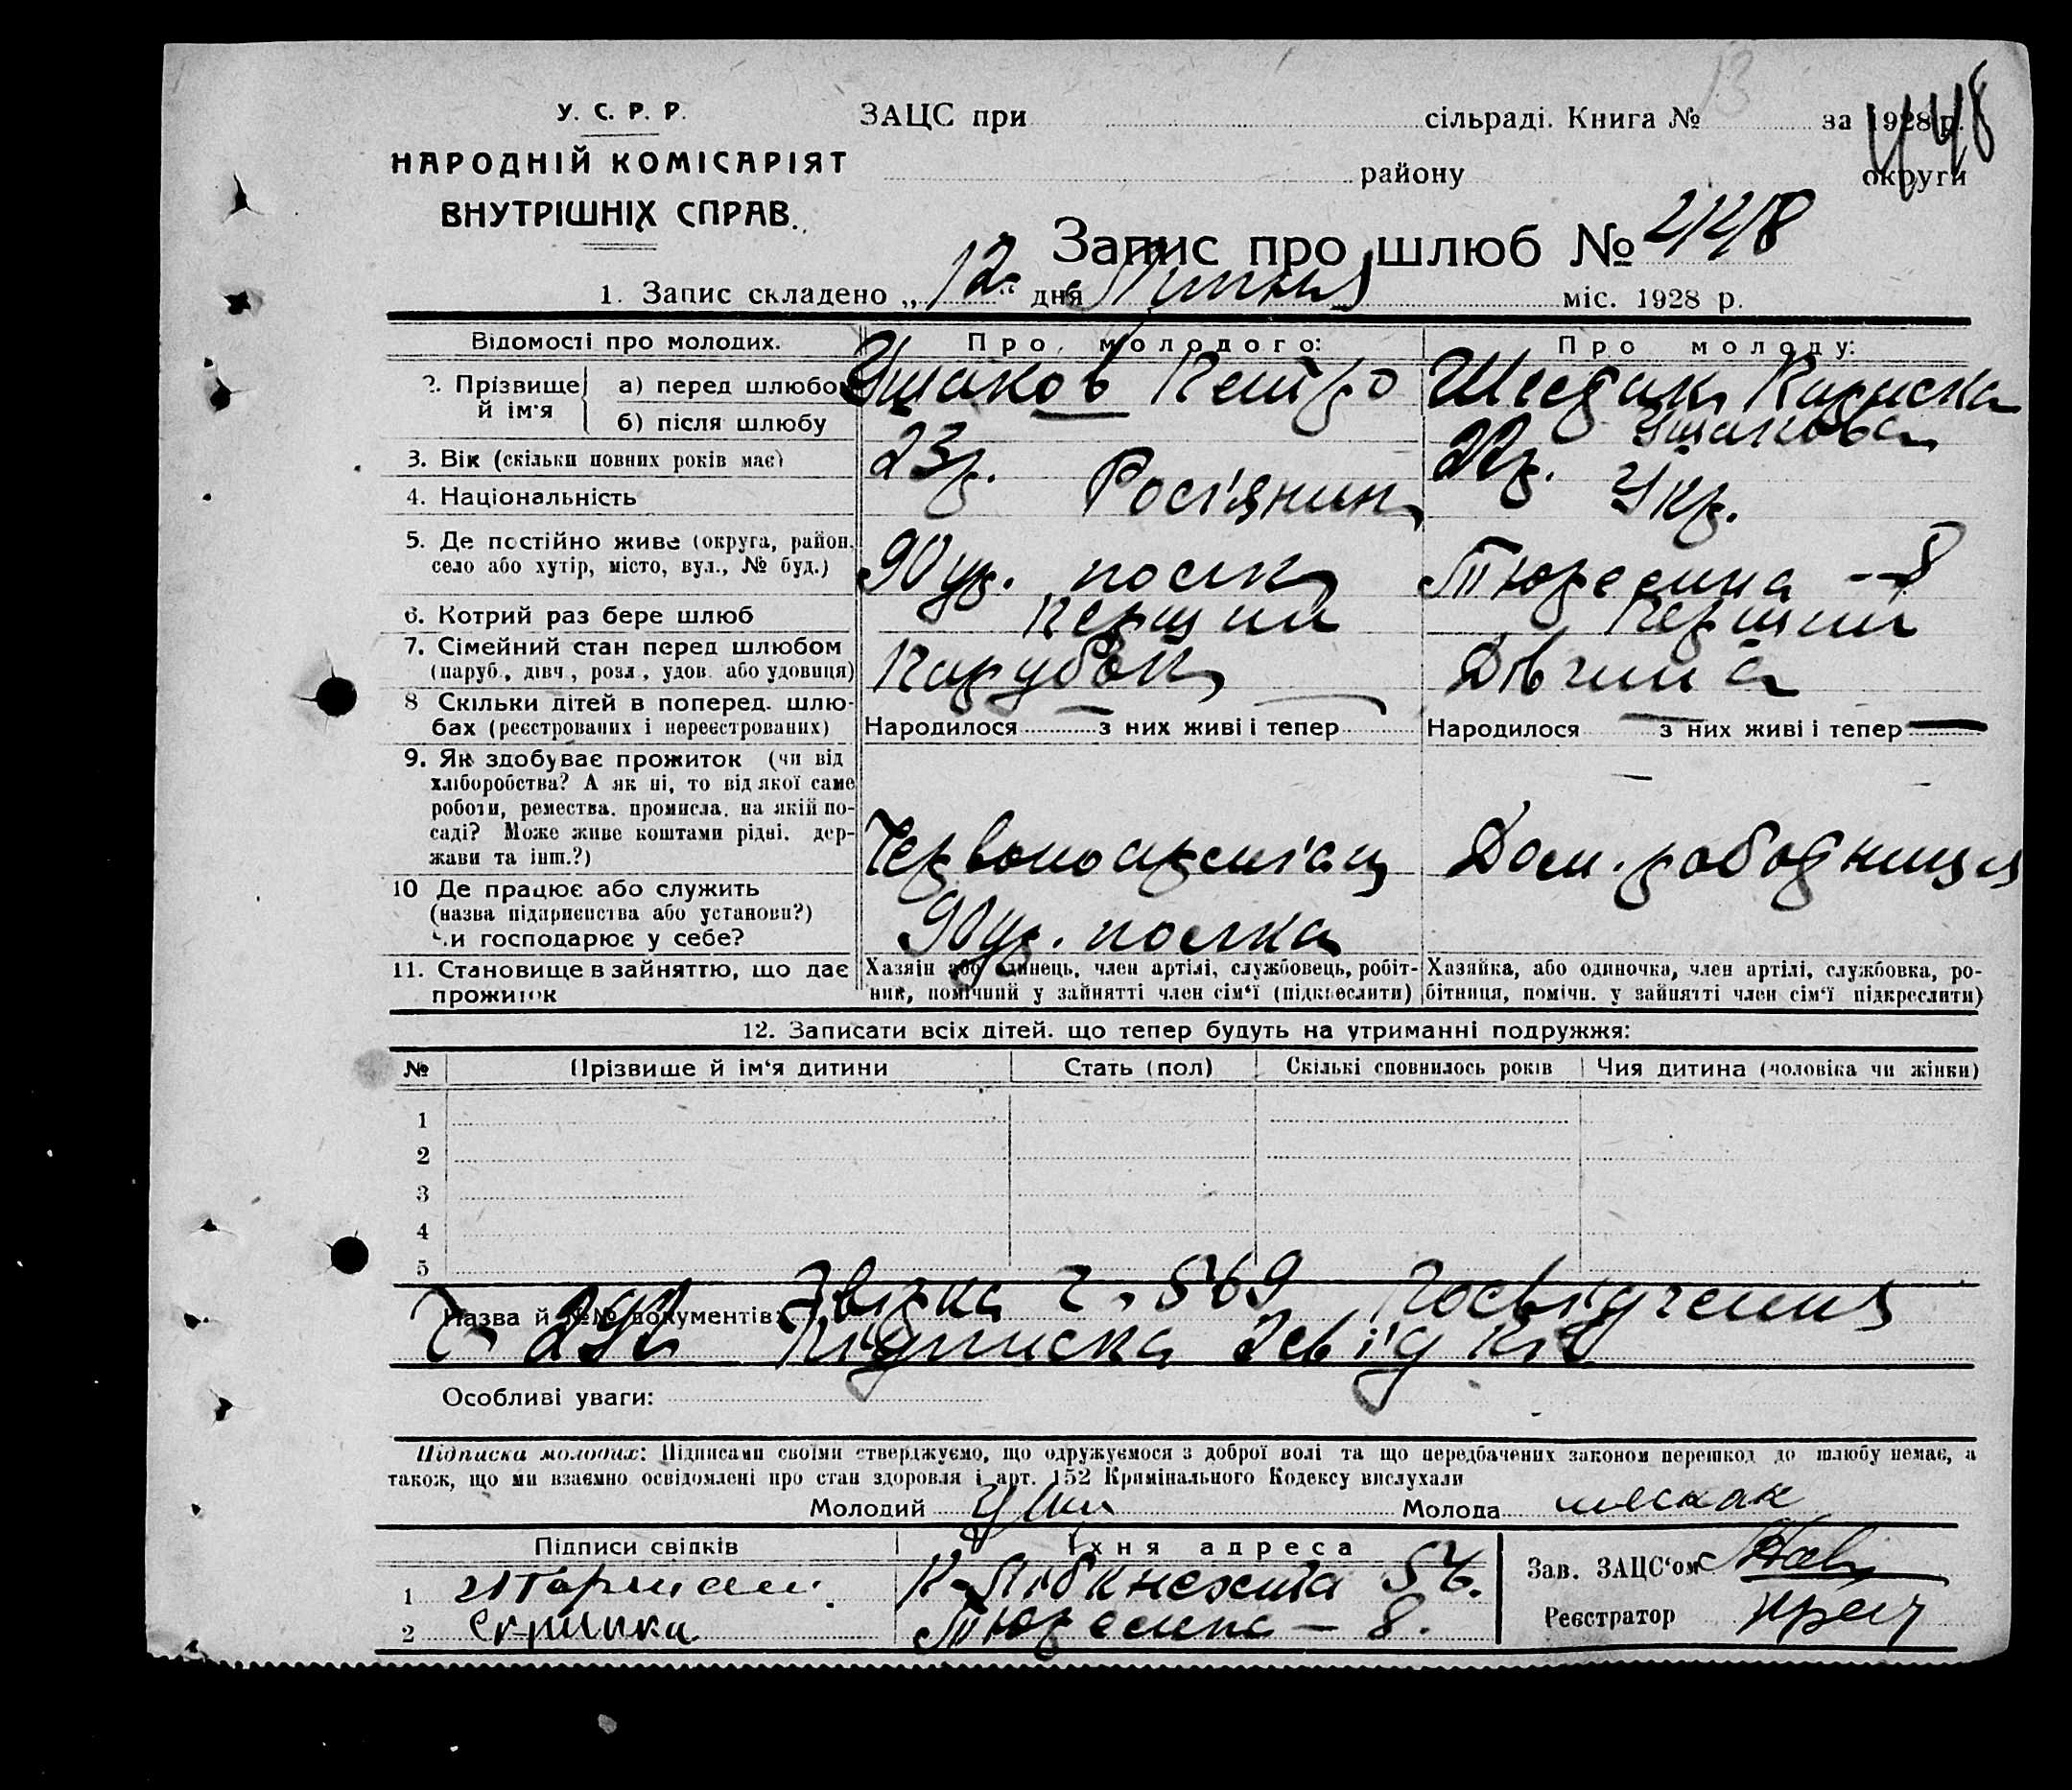 13
У. С. Р. Р.
ЗАЦС при сільраді. Книга № за 1928 р.
448
НАРОДНІЙ КОМІСАРІЯТ
району округи
ВНУТРІШНІХ СПРАВ.
Запис про шлюб № 448
1. Запис складено „ 12 " дня Липня міс. 1928 р.
Відомості про молодих. Про молодого: Про молоду:
2. Прізвище й ім'я а) перед шлюбом Ушаков Петро
б) після шлюбу Ушакова
3. Вік (скільки повних років має) 23 р. 22 р.
4. Національність Росіянин Укр.
5. Де постійно живе (округа, район,
село або хутір, місто, вул., № буд.) 90 ур. полк Тюремна - 8
6. Котрий раз бере шлюб Перший Перший
7. Сімейний стан перед шлюбом
(паруб., дівч., розл., удов. або удовиця) Парубок Дівчина
8 Скільки дітей в поперед. шлю-
бах (реєстрованих і нереєстрованих) Народилося — з них живі і тепер Народилося — з них живі і тепер —
9. Як здобуває прожиток (чи від
хліборобства? А як ні, то від якої саме
роботи, ремества, промисла, на якій по-
саді? Може живе коштами рідні, дер-
жави та інш.?) Червоноармієць Дом. рободниця
10 Де працює або служить
(назва підприємства або установи?)
Чи господарює у себе? 90 ур. полка
11. Становище в зайняттю, що дає
прожиток
Хазяїн або одинець, член артілі, службовець, робіт-
ник, помічний у зайнятті член сім'ї (підкреслити)
Хазяйка, або одиночка, член артілі, службовка, ро-
бітниця, помічн. у зайнятті член сім'ї підкреслити)
12. Записати всіх дітей, що тепер будуть на утриманні подружжя:
№ Прізвище й ім'я дитини Стать (пол) Скількі сповнилось років Чия дитина (чоловіка чи жінки)
1
2
3
4
5
Назва й №№ документів: Звірка ч. 569 Посвідчення
Підписка
Особливі уваги:
Підписка молодих: Підписами своїми стверджуємо, що одружуємося з доброї волі та що передбачених законом перешкод до шлюбу немає, а
також, що ми взаємно освідомлені про стан здоровля і арт. 152 Кримінального Кодексу вислухали
Молодий Молода
Підписи свідків Їхня адреса
1 К-Лібкнехта 54.
2 Тюремна — 8.
Зав. ЗАЦС'ом
Реєстратор